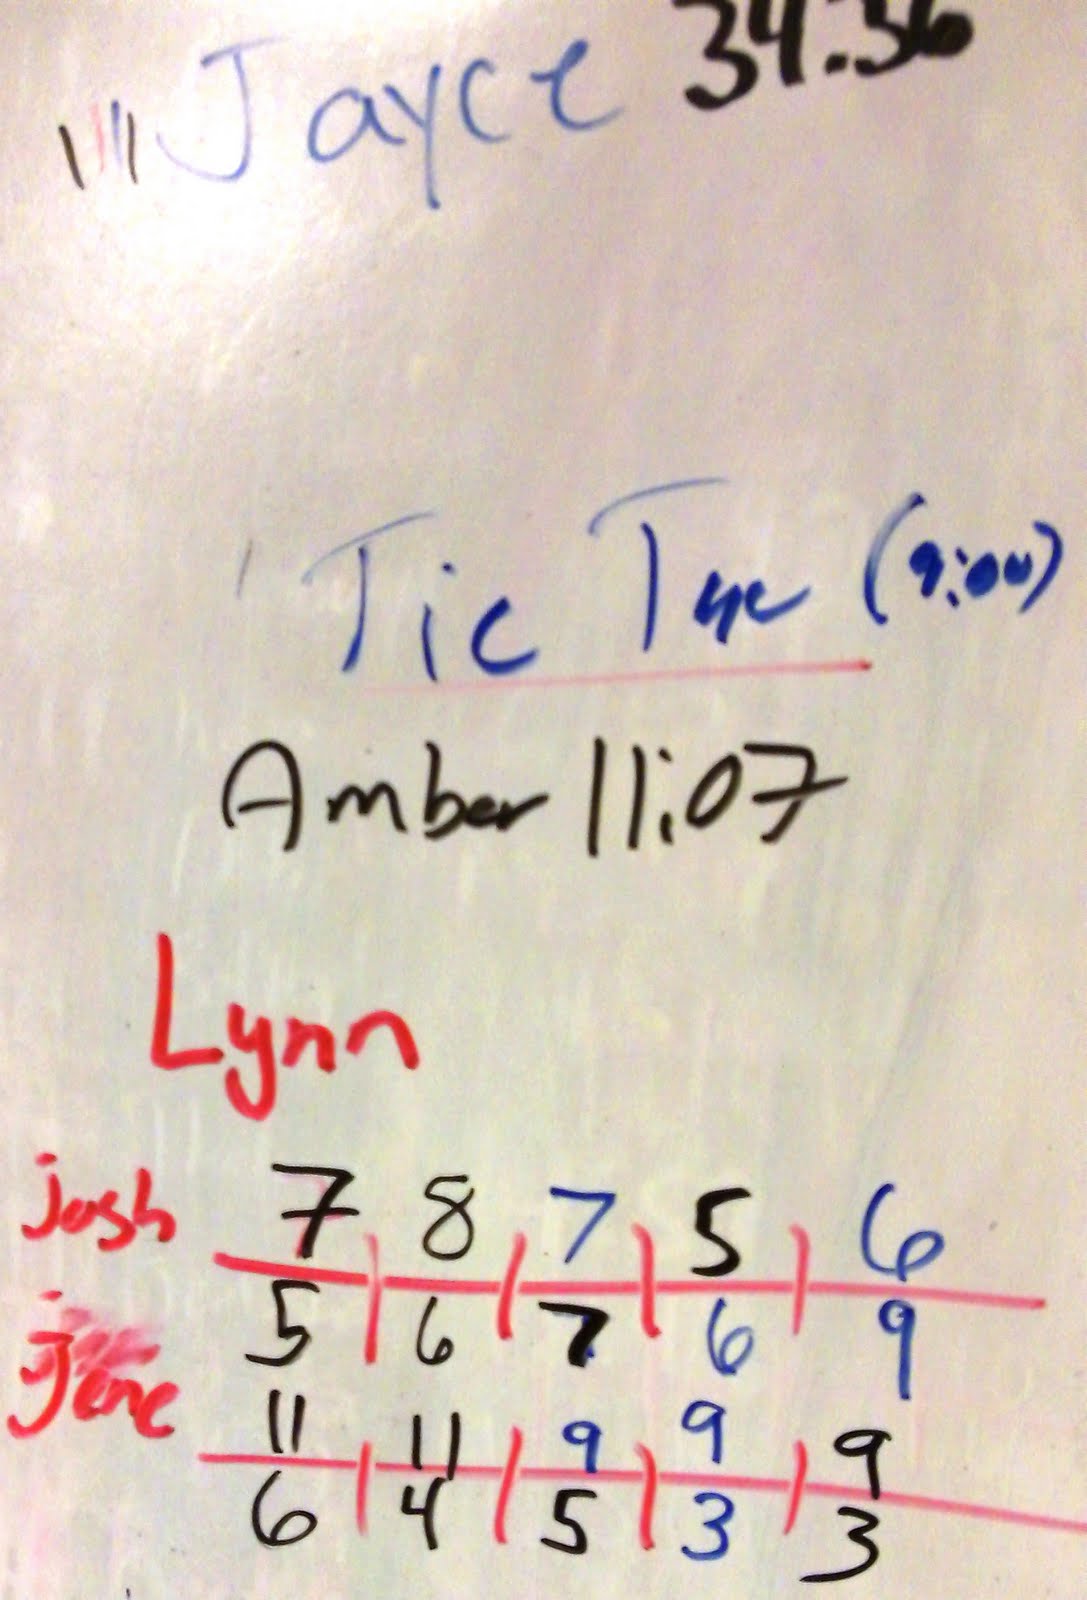 Jayce 34:36
Tic Tac (9:00)
Amber 11:07
Lynn
josh 7 8 7 5 6
5 6 7 6 9
jene 11 11 9 9 9
6 4 5 3 3